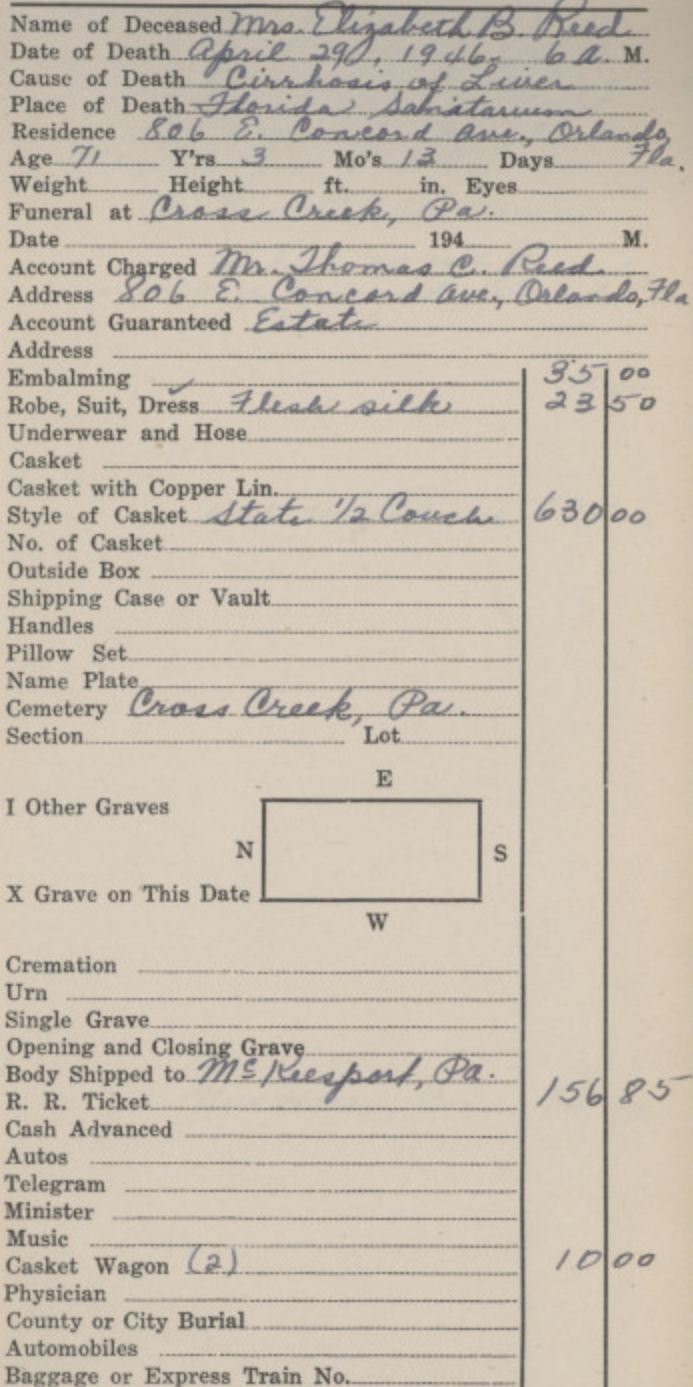 Name of Deceased Mrs. Elizabeth B. Reed
Date of Death April 29, 1946 6 a. M.
Cause of Death Cirrhosis of Liver
Place of Death Florida Sanatarium
Residence 806 E. Concord Ave., Orlando, Fla.
Age 71 Y'rs 3 Mo's 13 Days
Weight Height ft. in. Eyes
Funeral at Cross Creek, Pa.
Date 194 M.
Account Charged Mr. Thomas C. Reed
Address 806 E. Concord Ave., Orlando, Fla
Account Guaranteed Estate
Address
Embalming 35 00
Robe, Suit, Dress Flesh silk 23 50
Underwear and Hose
Casket
Casket with Copper Lin.
Style of Casket State 1/2 Couch 630 00
No. of Casket
Outside Box
Shipping Case or Vault
Handles
Pillow Set
Name Plate
Cemetery Cross Creek, Pa.
Section Lot
E
I Other Graves
N S
X Grave on This Date
W
Cremation
Urn
Single Grave
Opening and Closing Grave
Body Shipped to McKeesport, Pa.
R. R. Ticket 156 85
Cash Advanced
Autos
Telegram
Minister
Music
Casket Wagon (2) 10 00
Physician
County or City Burial
Automobiles
Baggage or Express Train No.